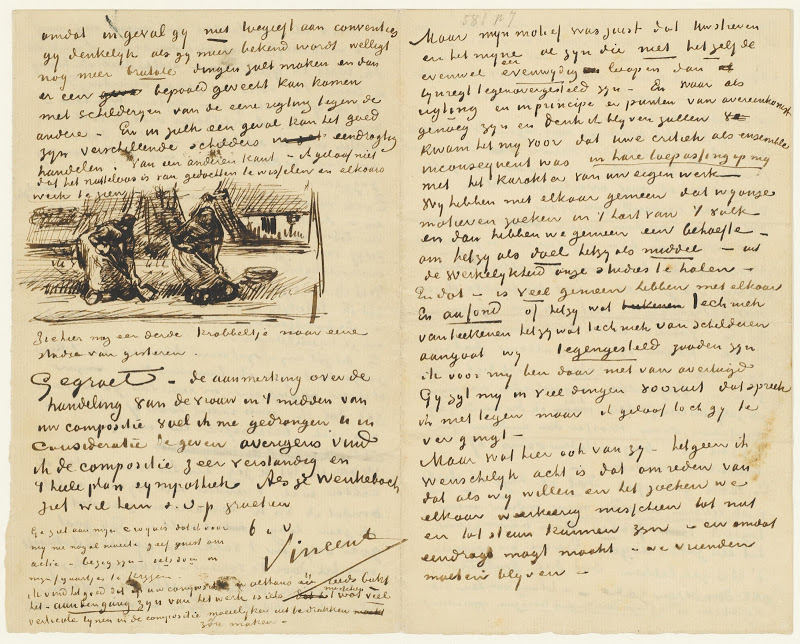 omdat in geval gy niet toegeeft aan conventies
gy denkelyk als gy meer bekend wordt welligt
nog meer brutale dingen zult maken en dan
er een bepaald gevecht kan komen
met schilderyen van de eene rigting tegen de
andere – En in zulk een geval kan het goed
zyn verschillende schilders eendragtig
handelen. Van een anderen kant – ik geloof niet
dat het nutteloos is van gedachten te wisselen en elkaars
werk te zien
Ziehier nog een derde krabbeltje naar eene
studie van gisteren.
Gegroet – de aanmerking over de
handeling van de vrouw in 't midden van
uw compositie voel ik me gedrongen U in
Consideratie te geven overigens vind
ik de compositie zeer verstandig en
't heele plan sympathiek Als ge Wenkebach
ziet wil hem s.v.p groeten
Ge ziet aan myn croquis dat ik voor
my me nogal moeite geef juist om
actie – bezig zyn – iets doen in
myn figuurtjes te krygen.
b. v.
Vincent
ik vind het goed dat in uw compositie althans iets bukt
het aan den gang zyn van het werk is iets misschien wat veel
verticale lynen in de compositie moeielyker uit te drukken
zou maken –
581 p 7
Maar myn motief was juist dat Uw streven
en het myne al zyn die niet hetzelfde
evenwel er evenwydig loopen dan
lynregt tegenovergesteld zyn – En waar als
rigting en in principe er punten van overeenkomst
genoeg zyn en denk ik blyven zullen
kwam het my voor dat uwe critiek als ensemble
inconsequent was in hare toepassing op my
met het karakter van uw eigen werk –
Wy hebben met elkaar gemeen dat wy onze
motieven zoeken in 't hart van 't volk
en dan hebben we gemeen een behoefte –
om hetzy als doel hetzy als middel – uit
de werkelykheid onze studies te halen –
En dat – is veel gemeen hebben met elkaar
En au fond of hetzy wat techniek
van teekenen hetzy wat techniek van schilderen
aangaat wy tegengesteld zouden zyn
ik voor my ben daar niet van overtuigd
Gy zyt my in veel dingen vooruit dat spreek
ik niet tegen maar ik geloof toch gy te
ver gingt –
Maar wat hier ook van zy – hetgeen ik
wenschelyk acht is dat om reden van
dat als wy willen en het zoeken we
elkaar weerkeerig misschien tot nut
en tot steun kunnen zyn – en omdat
eendragt magt maakt – we vrienden
moeten blyven –